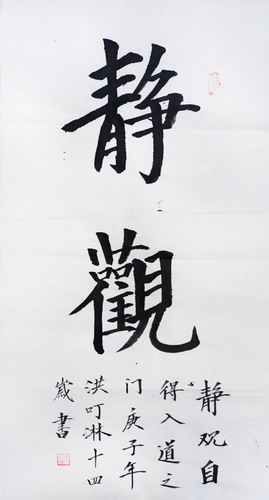 静
觀
静观自
得入道之
门庚子年
洪叮淋十四
歲書